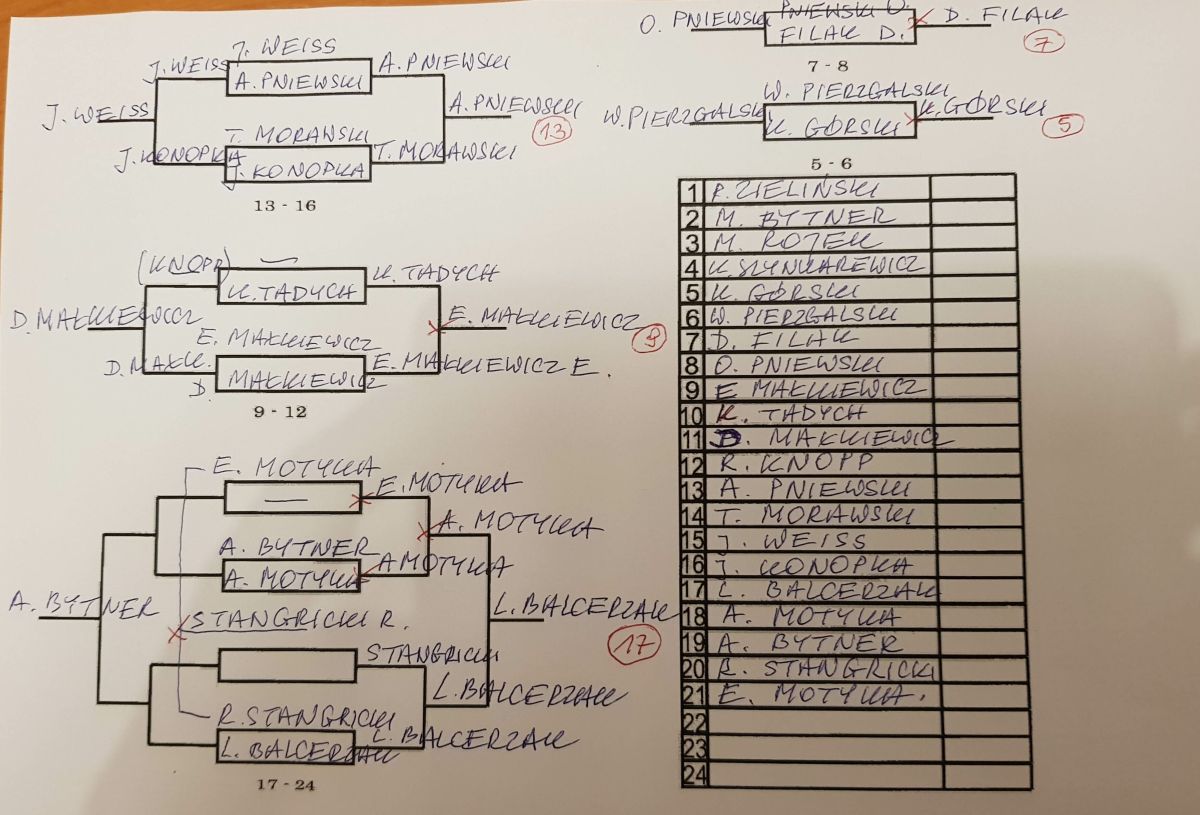 O. PNIEWSKI PNIEWSKI O. D. FILAK
FILAK D.
7
7 - 8
W. PIERZGALSKI
W. PIERZGALSKI K. GÓRSKI
K. GÓRSKI
5
5 - 6
J. WEISS
J. WEISS A. PNIEWSKI
A. PNIEWSKI
J. WEISS A. PNIEWSKI
13
T. MORAWSKI
J. KONOPKA T. MORAWSKI
J. KONOPKA
13 - 16
(KNOPP) K. TADYCH
K. TADYCH
D. MAŁKIEWICZ E. MAŁKIEWICZ
9
E. MAŁKIEWICZ
D. MAŁK. E. MAŁKIEWICZ E.
D. MAŁKIEWICZ
9 - 12
E. MOTYKA
E. MOTYKA
A. MOTYKA
A. BYTNER
A. MOTYKA A MOTYKA
A. BYTNER L. BALCERZAK
STANGRICKI R.
17
STANGRICKI
L. BALCERZAK
R. STANGRICKI
L. BALCERZAK L. BALCERZAK
17 - 24
1 R. ZIELIŃSKI
2 M. BYTNER
3 M. ROJEK
4 K. SZYNKAREWICZ
5 K. GÓRSKI
6 W. PIERZGALSKI
7 D. FILAK
8 O. PNIEWSKI
9 E MAŁKIEWICZ
10 K. TADYCH
11 D. MAŁKIEWICZ
12 R. KNOPP
13 A. PNIEWSKI
14 T. MORAWSKI
15 J. WEISS
16 J. KONOPKA
17 L. BALCERZAK
18 A. MOTYKA
19 A. BYTNER
20 R. STANGRICKI
21 E. MOTYKA.
22
23
24